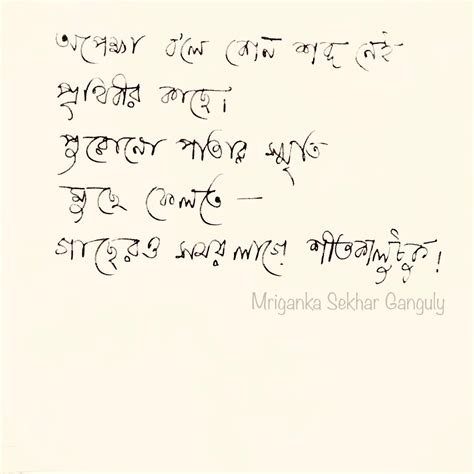 অপেক্ষা ব'লে কোন শব্দ নেই
পৃথিবীর কাছে।
পুরোনো পাতার স্মৃতি
মুছে ফেলতে —
গাছেরও সময় লাগে শীতকালটুকু!
Mriganka Sekhar Ganguly